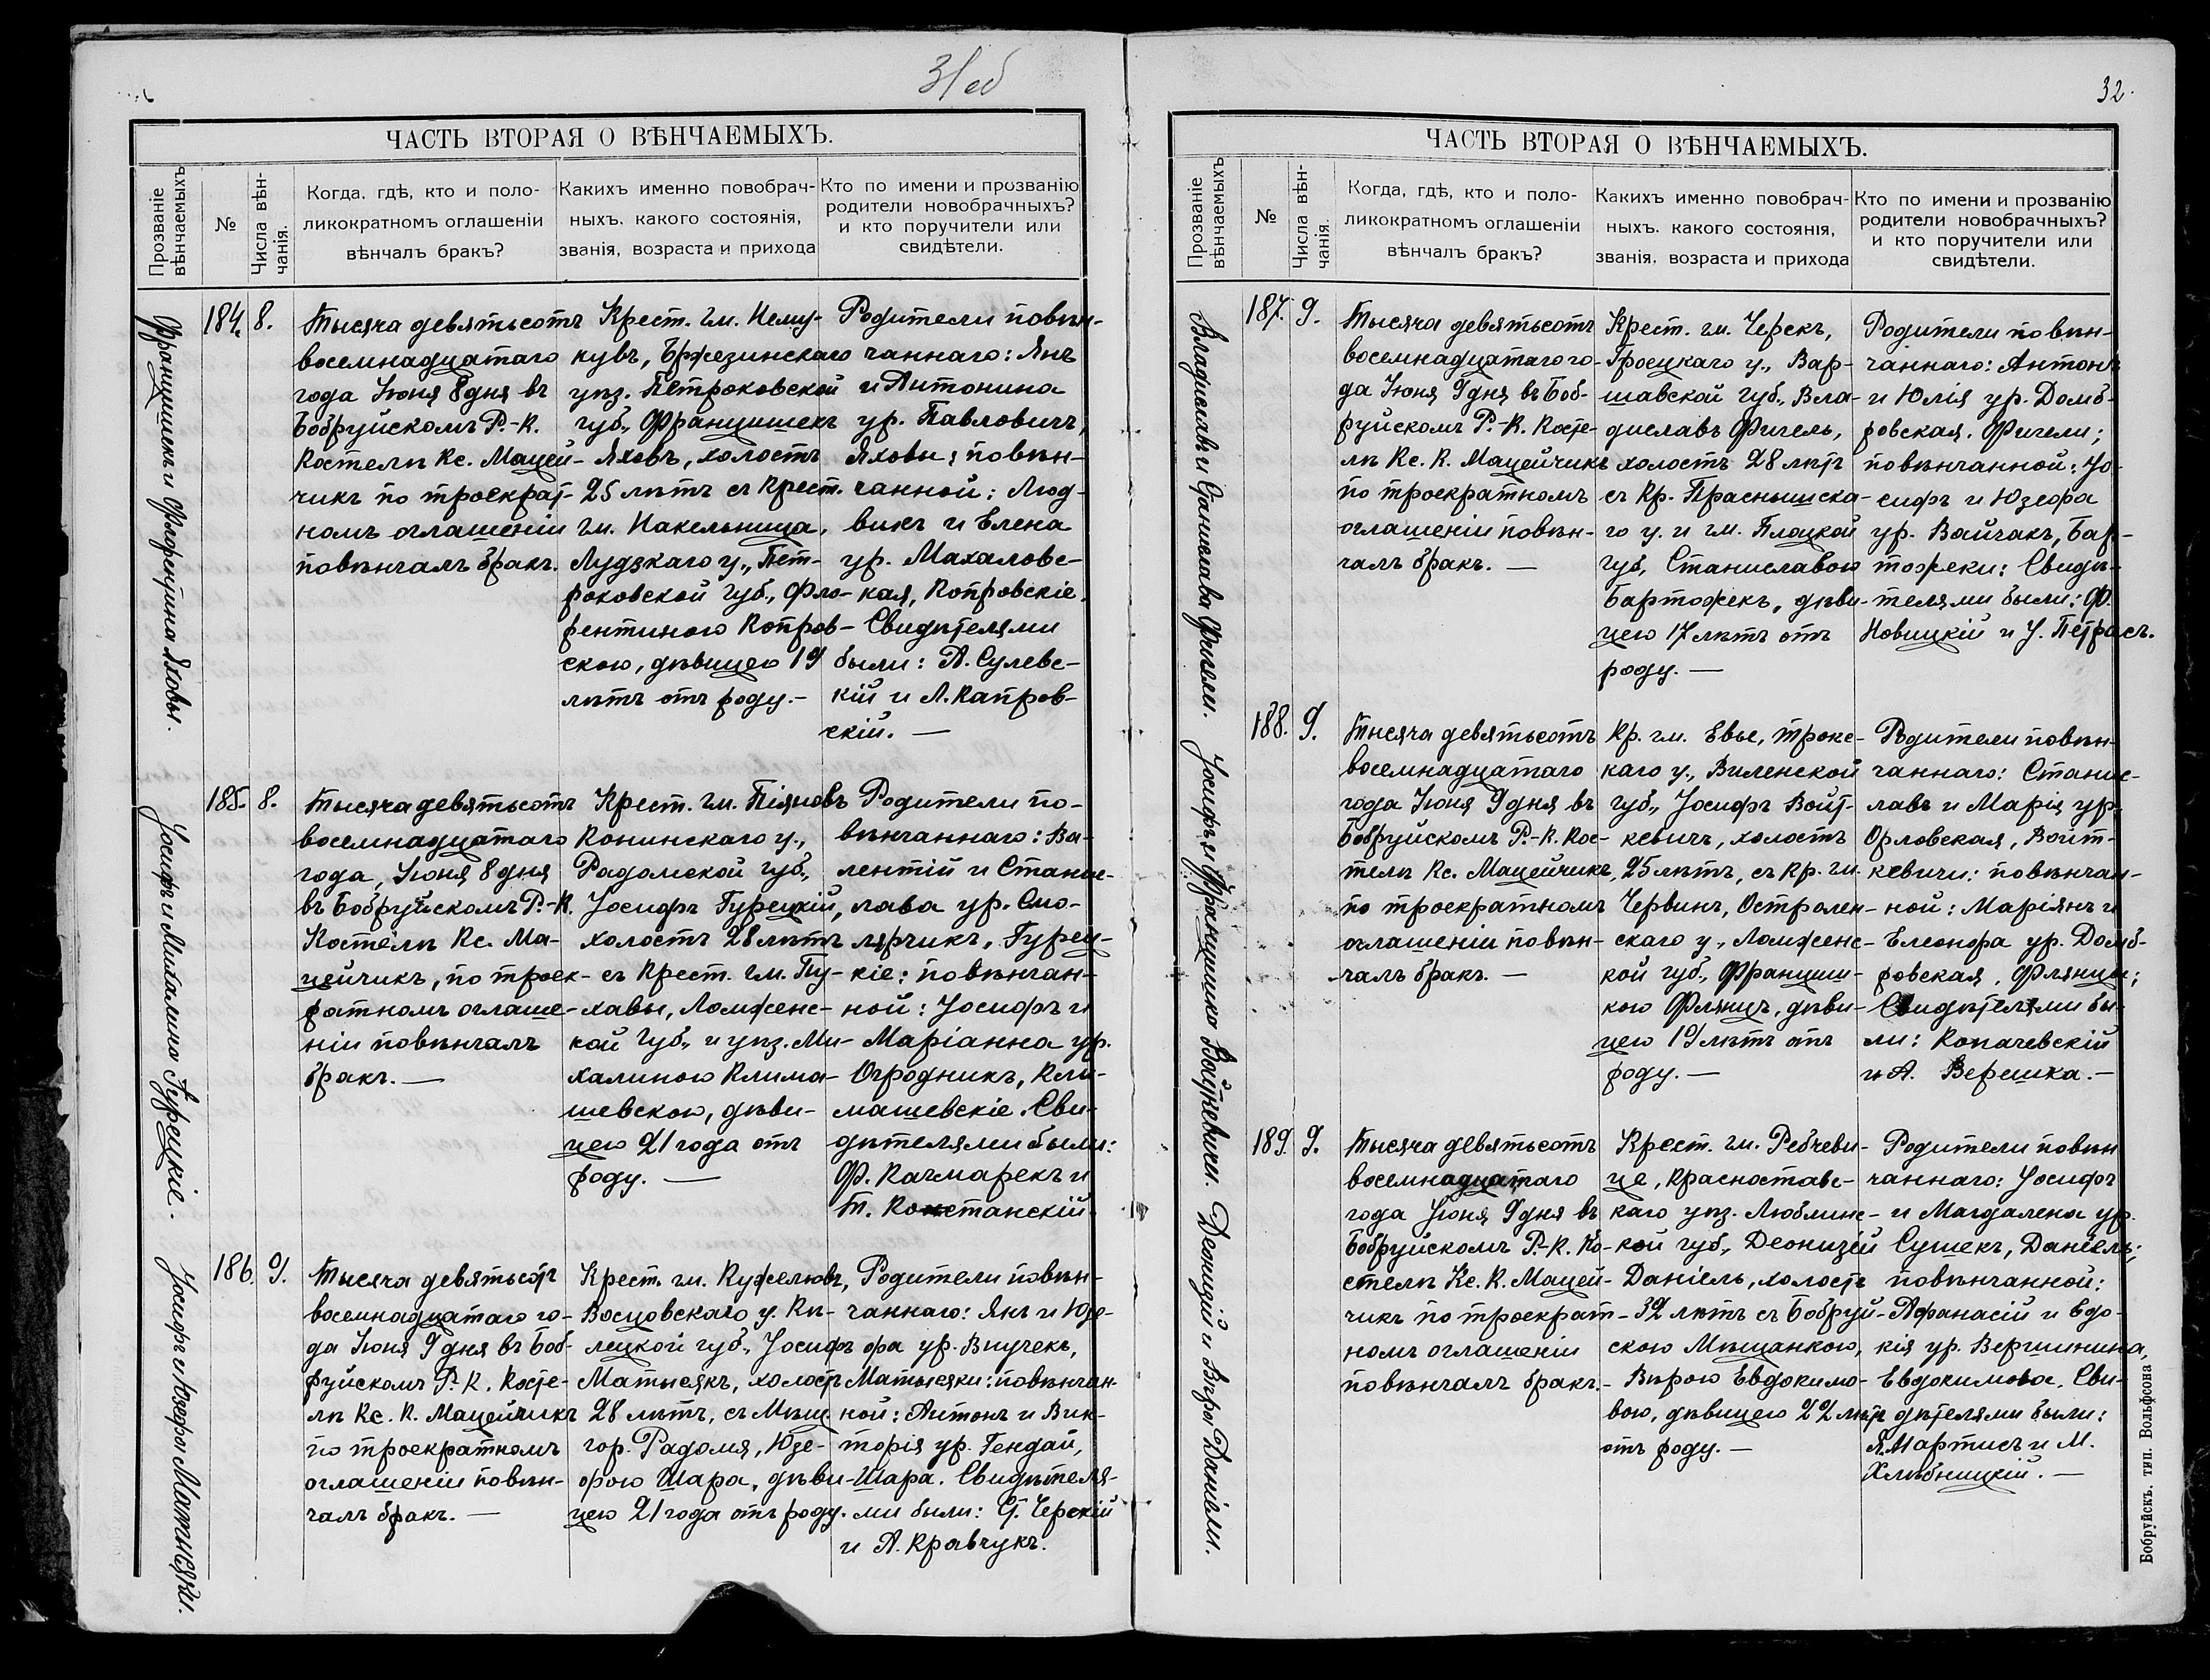 31 об
ЧАСТЬ ВТОРАЯ О ВѢНЧАЕМЫХЪ.
Прозваніе
вѣнчаемыхъ
№
Числа вѣн-
чанія.
Когда, гдѣ, кто и поло-
ликократномъ оглашеніи
вѣнчалъ бракъ?
Какихъ именно новобрач-
ныхъ, какого состоянія,
званія, возраста и прихода
Кто по имени и прозванію
родители новобрачныхъ?
и кто поручители или
свидѣтели.
Францишекъ и Флорентина Яховы.
184. 8.
Тысяча девятьсотъ
восемнадцатаго
года Іюня 8 дня въ
Бобруйскомъ Р.-К.
Костелѣ Кс. Мацей-
чикъ по троекрат-
номъ оглашеніи
повѣнчалъ бракъ.
Крест. гм. Нему-
Бржезинскаго
уѣз. Петроковской
губ., Францишекъ
Яховъ, холостъ
25 лѣтъ съ крест.
гм. Накельница,
Лудзкаго у., Пет-
роковской губ., Фло-
рентиною Копров-
скою, дѣвицею 19
лѣтъ отъ роду.-
Родители повѣн-
чаннаго: Янъ
и Антонина
ур. Павловичъ,
Яховы; повѣн-
чанной: Люд-
викъ и Елена
ур. Махаловс-
кая, Копровскіе.
Свидѣтелями
были: А. Сулевс-
кій и Л. Капров-
скій. —
Іосифъ и Михалина Гурецкіе.
185. 8.
Тысяча девятьсотъ
восемнадцатаго
года, Іюня 8 дня
въ Бобруйскомъ Р.-К.
Костелѣ Кс. Ма-
цейчикъ, по троек-
ратномъ оглаше-
ніи повѣнчалъ
бракъ. —
Крест. гм. Піяновъ
Конинскаго у.,
Радомской губ.,
Іосифъ Гурецкій,
холостъ 28 лѣтъ
съ Крест. гм. Пу-
хавы, Ломженс-
кой губ., и уѣз. Ми-
халиною Клима-
шевскою, дѣви-
цею 21 года отъ
роду. —
Родители по-
вѣнчаннаго: Ва-
лентій и Станис-
лава ур. Смо-
лярчикъ, Гурец-
кіе; повѣнчан-
ной: Іосифъ и
Маріанна ур.
Огродникъ, Кли-
машевскіе. Сви-
дѣтелями были:
Ф. Качмарекъ и
Т. Константскій.
Іосифъ и Юзефа Матысяки.
186. 9.
Тысяча девятьсотъ
восемнадцатаго го-
да Іюня 9 дня въ Боб-
руйскомъ Р.-К. Косте-
лѣ Кс. К. Мацейчикъ
по троекратномъ
оглашеніи повѣн-
чалъ бракъ. —
Крест. гм. Кужелювъ,
Восцовскаго у. Кѣ-
лецкой губ., Іосифъ
Матысякъ, холостъ
28 лѣтъ, съ Мѣщ.
гор. Радомя, Юзе-
фою Шара, дѣви-
цею 21 года отъ роду.
Родители повѣн-
чаннаго: Янъ и Юзе-
фа ур. Внучекъ,
Матысяки; повѣнчан-
ной: Антонъ и Вик-
торія ур. Гендай,
Шара. Свидѣтеля-
ми были: С. Черскій
и А. Кравчукъ.
32.
ЧАСТЬ ВТОРАЯ О ВѢНЧАЕМЫХЪ.
Прозваніе
вѣнчаемыхъ
№
Числа вѣн-
чанія.
Когда, гдѣ, кто и поло-
ликократномъ оглашеніи
вѣнчалъ бракъ?
Какихъ именно новобрач-
ныхъ, какого состоянія,
званія, возраста и прихода
Кто по имени и прозванію
родители новобрачныхъ?
и кто поручители или
свидѣтели.
Владиславъ и Станислава Фигели.
187. 9.
Тысяча девятьсотъ
восемнадцатаго го-
да Іюня 9 дня въ Боб-
руйскомъ Р.-К. Косте-
лѣ Кс. К. Мацейчикъ
по троекратномъ
оглашеніи повѣн-
чалъ бракъ. —
Крест. гм. Черскъ,
Гроецкаго у., Вар-
шавской губ., Вла-
диславъ Фигель,
холостъ 28 лѣтъ
съ Кр. Праснышска-
го у. и гм. Плоцкой
губ, Станиславою
Бартожекъ, дѣви-
цею 17 лѣтъ отъ
роду. —
Родители повѣн-
чаннаго: Антонъ
и Юлія ур. Домб-
ровская, Фигели;
повѣнчанной: Іо-
сифъ и Юзефа
ур. Вайчакъ, Бар-
тожеки: Свидѣ-
телями были: Ф.
Новицкій и У. Петрасъ.
Іосифъ и Францишка Войткевичи.
188. 9.
Тысяча девятьсотъ
восемнадцатаго
года Іюня 9 дня въ
Бобруйскомъ Р.-К. Кос-
телѣ Кс. Мацейчикъ,
по троекратномъ
оглашеніи повѣн-
чалъ бракъ. —
Кр. гм. Евье, Трокс-
каго у., Виленской
губ., Іосифъ Войт-
кевичъ, холостъ
25 лѣтъ, съ Кр. гм.
Червинъ, Остролен-
скаго у., Ломженс-
кой губ., Францииш-
кою Флянцъ, дѣви-
цею 19 лѣтъ отъ
роду. —
Родители повѣн-
чаннаго: Станис-
лавъ и Марія ур.
Орловская, Войт-
кевичи; повѣнчан-
ной: Маріянъ и
Елеонора ур. Домб-
ровская, Флянцы;
Свидѣтелями бы-
ли: Копачевскій
и А. Верешка.-
Деонизій и Вѣра Даніели.
189. 9.
Тысяча девятьсотъ
восемнадцатаго
года Іюня 9 дня въ
Бобруйскомъ Р.-К. Ко-
стелѣ Кс. К. Мацей-
чикъ по троекрат-
номъ оглашеніи
повѣнчалъ бракъ.-
Крест. гм. Ребчеви-
це, Красноставс-
каго уѣз. Люблинс-
кой губ., Деонизій
Даніель, холостъ
32 лѣтъ съ Бобруй-
скою Мѣщанкою,
Вѣрою Евдокимо-
вою, дѣвицею 22 лѣтъ
отъ роду. —
Родители повѣн
чаннаго: Іосифъ
и Магдалена ур.
Сушекъ, Даніель;
повѣнчанной:
Афанасій и Евдо-
кія ур. Вершинина,
Евдокимова. Сви-
дѣтелями были:
Я. Мартисъ и М.
Хлѣбницкій. —
Бобруйскъ, тип. Вольфсона